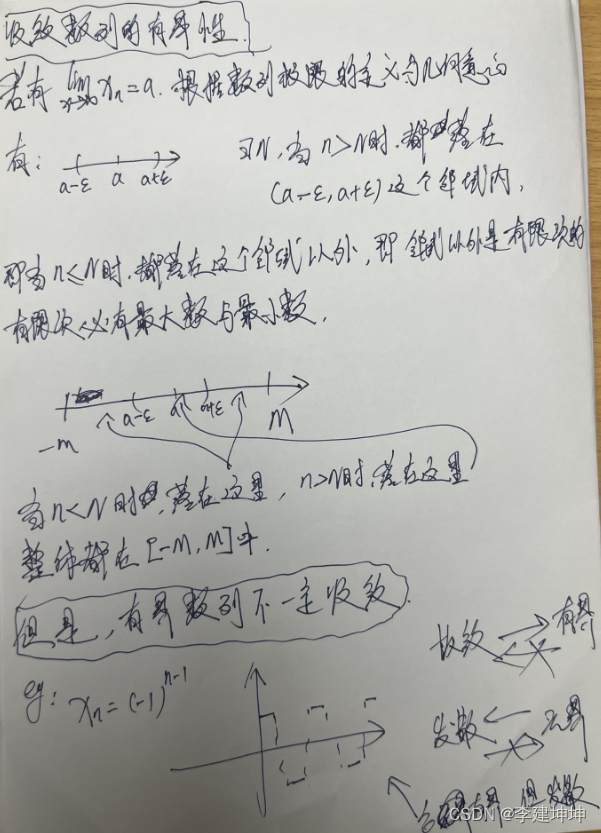 收敛数列的有界性.
若有 lim xn = a. 根据数列极限的定义与几何意义
x→∞
有: a-ε a a+ε
∃N, 当 n>N时. 都落在
(a-ε, a+ε) 这个邻域内.
即当 n≤N 时. 都落在这个邻域以外, 即邻域以外是有限次的
有限次必有最大数与最小数.
-M a-ε a a+ε M
当 n<N 时 落在这里, n>N时 落在这里
整体都在 [-M, M] 中.
但是, 有界数列不一定收敛.
收敛 有界
eg: xn = (-1)^{n-1}
发散 无界
有界 但发散
CSDN @李建坤坤